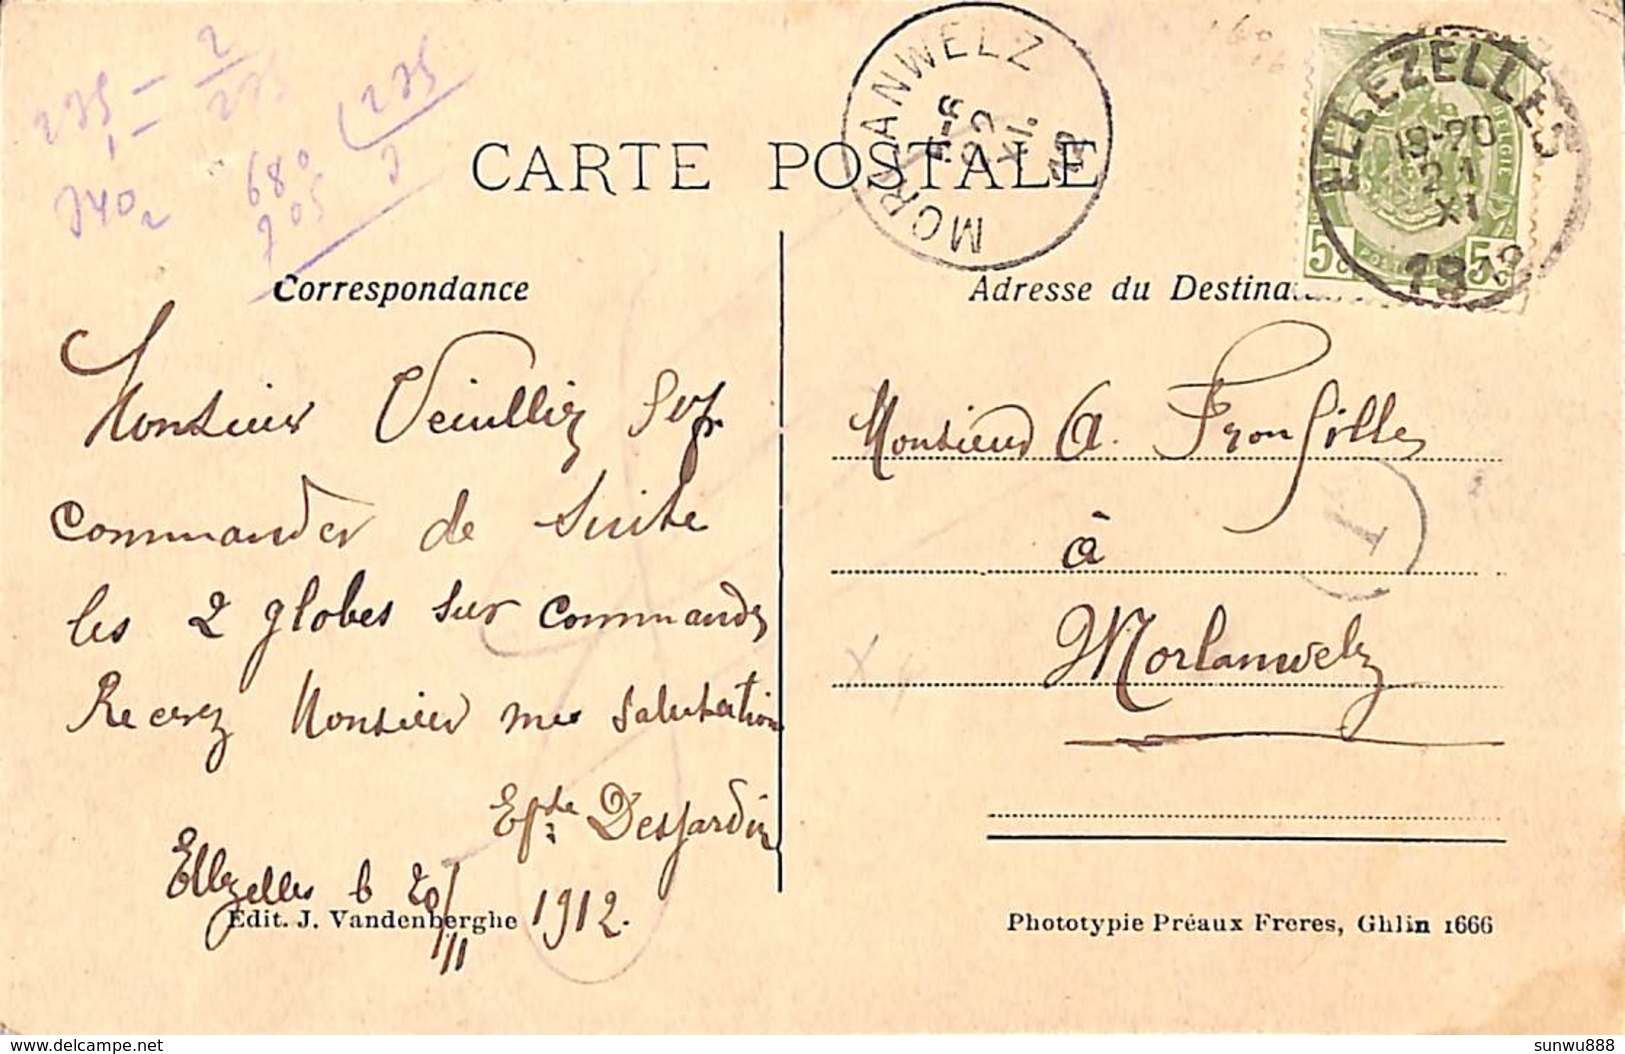 235 - 2
1 - 235
340
680
905
(235
3
CARTE POSTALE
MORLANWELZ
22
XI.
12
ELLEZELLES
19-20
21
XI
1912
BELGIE
5c POSTES 5c
Correspondance
Adresse du Destina
Monsieur Veiulliez
commander de Suite
les 2 globes sur commande
Recevez Monsieur mes Salutation
Desjardin
Ellezelles le 20/11 1912.
Monsieur A.
à
Morlanwelz
1
Edit. J. Vandenberghe
Phototypie Préaux Freres, Ghlin 1666
delcampe.net
sunwu888